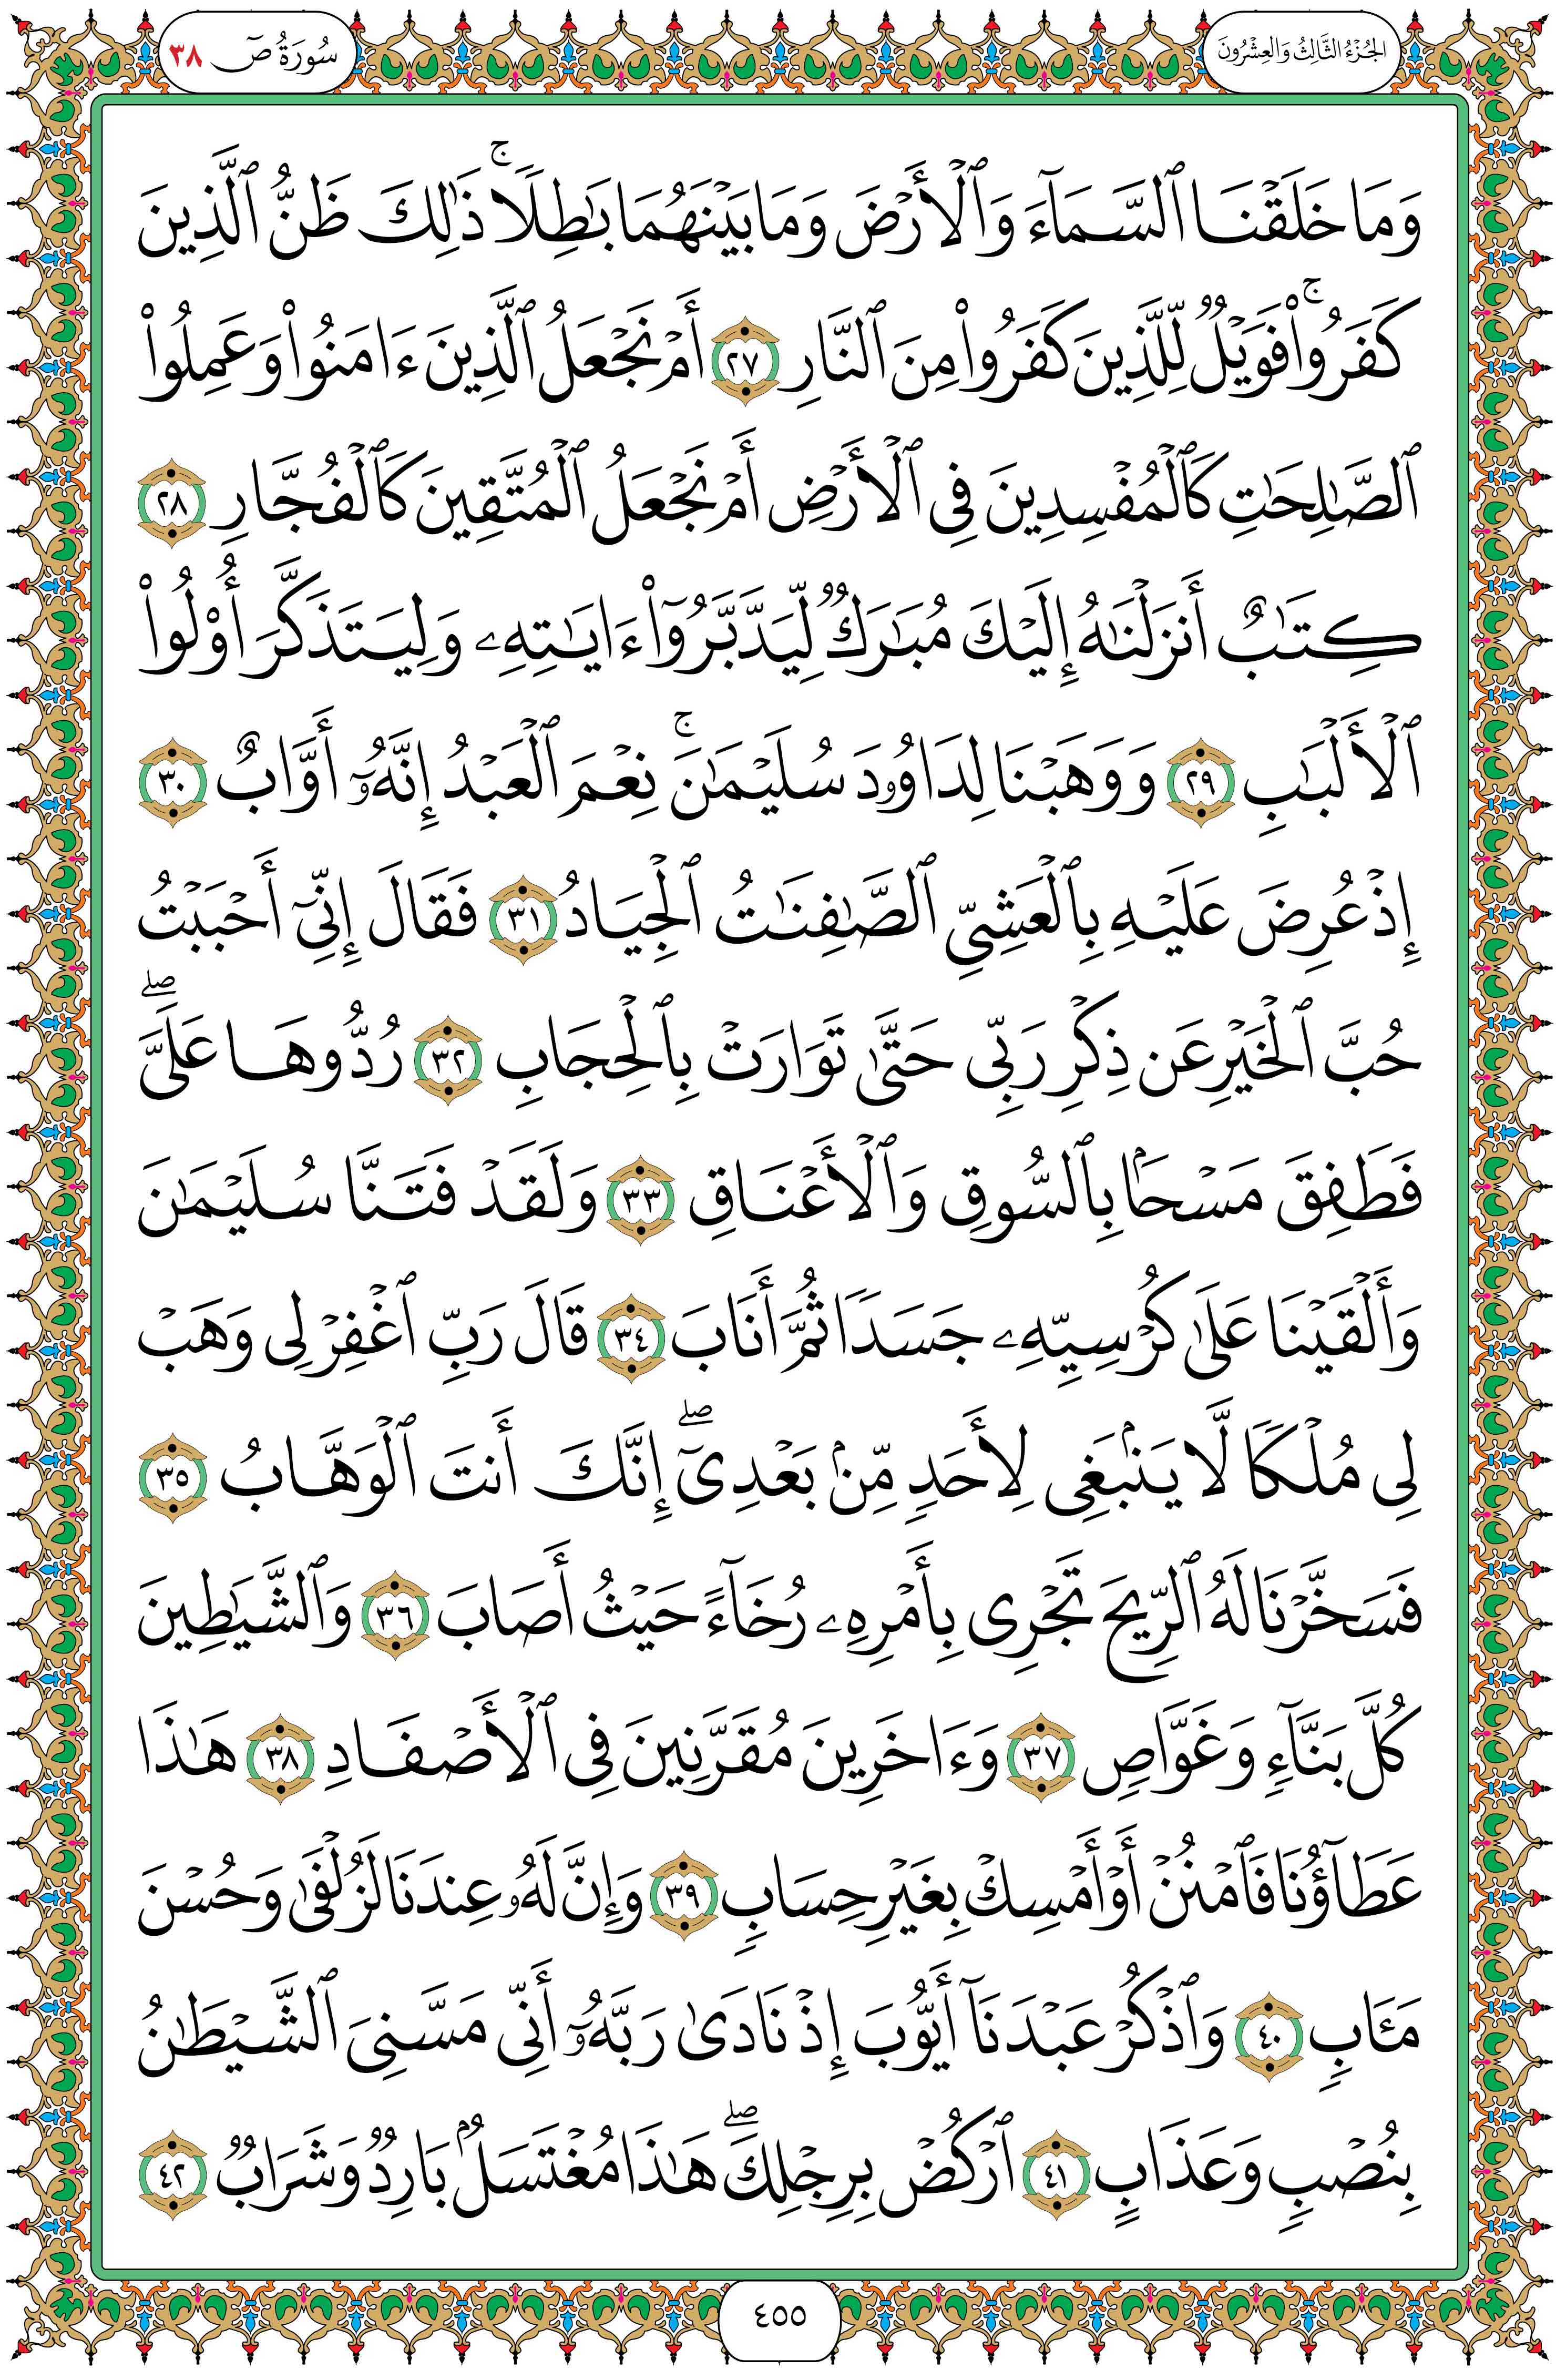 الجُزْءُ الثَّالِثُ وَالعِشْرُونَ
سُورَةُ صٓ ٣٨
وَمَا خَلَقْنَا ٱلسَّمَآءَ وَٱلْأَرْضَ وَمَا بَيْنَهُمَا بَٰطِلًاۚ ذَٰلِكَ ظَنُّ ٱلَّذِينَ
كَفَرُوا۟ۚ فَوَيْلٌ لِّلَّذِينَ كَفَرُوا۟ مِنَ ٱلنَّارِ ٢٧ أَمْ نَجْعَلُ ٱلَّذِينَ ءَامَنُوا۟ وَعَمِلُوا۟
ٱلصَّٰلِحَٰتِ كَٱلْمُفْسِدِينَ فِى ٱلْأَرْضِ أَمْ نَجْعَلُ ٱلْمُتَّقِينَ كَٱلْفُجَّارِ ٢٨
كِتَٰبٌ أَنزَلْنَٰهُ إِلَيْكَ مُبَٰرَكٌ لِّيَدَّبَّرُوٓا۟ ءَايَٰتِهِۦ وَلِيَتَذَكَّرَ أُو۟لُوا۟
ٱلْأَلْبَٰبِ ٢٩ وَوَهَبْنَا لِدَاوُۥدَ سُلَيْمَٰنَۚ نِعْمَ ٱلْعَبْدُ إِنَّهُۥٓ أَوَّابٌ ٣٠
إِذْ عُرِضَ عَلَيْهِ بِٱلْعَشِىِّ ٱلصَّٰفِنَٰتُ ٱلْجِيَادُ ٣١ فَقَالَ إِنِّىٓ أَحْبَبْتُ
حُبَّ ٱلْخَيْرِ عَن ذِكْرِ رَبِّى حَتَّىٰ تَوَارَتْ بِٱلْحِجَابِ ٣٢ رُدُّوهَا عَلَىَّۖ
فَطَفِقَ مَسْحًۢا بِٱلسُّوقِ وَٱلْأَعْنَاقِ ٣٣ وَلَقَدْ فَتَنَّا سُلَيْمَٰنَ
وَأَلْقَيْنَا عَلَىٰ كُرْسِيِّهِۦ جَسَدًا ثُمَّ أَنَابَ ٣٤ قَالَ رَبِّ ٱغْفِرْ لِى وَهَبْ
لِى مُلْكًا لَّا يَنۢبَغِى لِأَحَدٍ مِّنۢ بَعْدِىٓۖ إِنَّكَ أَنتَ ٱلْوَهَّابُ ٣٥
فَسَخَّرْنَا لَهُ ٱلرِّيحَ تَجْرِى بِأَمْرِهِۦ رُخَآءً حَيْثُ أَصَابَ ٣٦ وَٱلشَّيَٰطِينَ
كُلَّ بَنَّآءٍ وَغَوَّاصٍ ٣٧ وَءَاخَرِينَ مُقَرَّنِينَ فِى ٱلْأَصْفَادِ ٣٨ هَٰذَا
عَطَآؤُنَا فَٱمْنُنْ أَوْ أَمْسِكْ بِغَيْرِ حِسَابٍ ٣٩ وَإِنَّ لَهُۥ عِندَنَا لَزُلْفَىٰ وَحُسْنَ
مَـَٔابٍ ٤٠ وَٱذْكُرْ عَبْدَنَآ أَيُّوبَ إِذْ نَادَىٰ رَبَّهُۥٓ أَنِّى مَسَّنِىَ ٱلشَّيْطَٰنُ
بِنُصْبٍ وَعَذَابٍ ٤١ ٱرْكُضْ بِرِجْلِكَۖ هَٰذَا مُغْتَسَلٌۢ بَارِدٌ وَشَرَابٌ ٤٢
٤٥٥